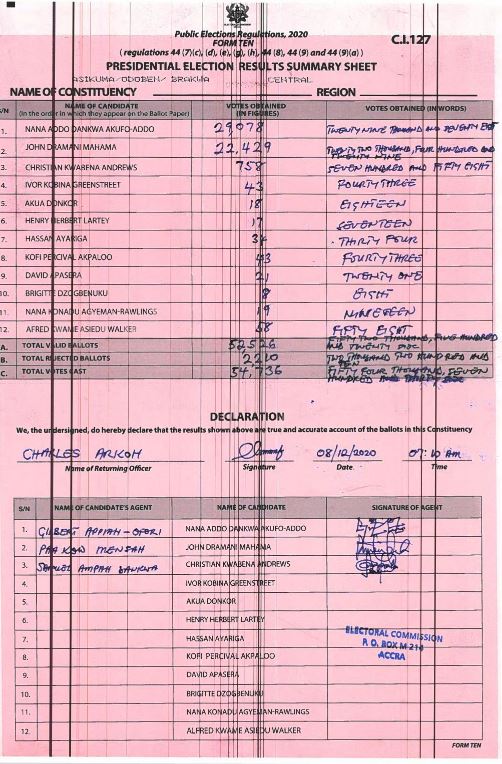 Public Elections Regulations, 2020
FORM TEN
C.I.127
( regulations 44 (7)(c), (d), (e), (g), (h), 44 (8), 44 (9) and 44 (9)(a) )
PRESIDENTIAL ELECTION RESULTS SUMMARY SHEET
ASIKUMA/ODOBEN/BRAKWA CENTRAL
NAME OF CONSTITUENCY REGION
S/N NAME OF CANDIDATE (In the order in which they appear on the Ballot Paper) VOTES OBTAINED (IN FIGURES) VOTES OBTAINED (IN WORDS)
1. NANA ADDO DANKWA AKUFO-ADDO 29,078 TWENTY NINE THOUSAND AND SEVENTY EIGHT
2. JOHN DRAMANI MAHAMA 22,429 TWENTY TWO THOUSAND, FOUR HUNDRED AND TWENTY NINE
3. CHRISTIAN KWABENA ANDREWS 758 SEVEN HUNDRED AND FIFTY EIGHT
4. IVOR KOBINA GREENSTREET 43 FOURTY THREE
5. AKUA DONKOR 18 EIGHTEEN
6. HENRY HERBERT LARTEY 17 SEVENTEEN
7. HASSAN AYARIGA 34 THIRTY FOUR
8. KOFI PERCIVAL AKPALOO 43 FOURTY THREE
9. DAVID APASERA 21 TWENTY ONE
10. BRIGITTE DZOGBENUKU 8 EIGHT
11. NANA KONADU AGYEMAN-RAWLINGS 19 NINETEEN
12. AFRED KWAME ASIEDU WALKER 58 FIFTY EIGHT
A. TOTAL VALID BALLOTS 52,526 FIFTY TWO THOUSAND, FIVE HUNDRED AND TWENTY SIX
B. TOTAL REJECTED BALLOTS 2210 TWO THOUSAND TWO HUNDRED AND TEN
C. TOTAL VOTES CAST 54,736 FIFTY FOUR THOUSAND, SEVEN HUNDRED AND THIRTY SIX
DECLARATION
We, the undersigned, do hereby declare that the results shown above are true and accurate account of the ballots in this Constituency
CHARLES ARKOH 08/12/2020 07:10 AM
Name of Returning Officer Signature Date Time
S/N NAME OF CANDIDATE'S AGENT NAME OF CANDIDATE SIGNATURE OF AGENT
1. GILBERT APPIAH-OFORI NANA ADDO DANKWA AKUFO-ADDO
2. PAA KOW MENSAH JOHN DRAMANI MAHAMA
3. SAMUEL AMPAH CHRISTIAN KWABENA ANDREWS
4. IVOR KOBINA GREENSTREET
5. AKUA DONKOR
6. HENRY HERBERT LARTEY
7. HASSAN AYARIGA
8. KOFI PERCIVAL AKPALOO
9. DAVID APASERA
10. BRIGITTE DZOGBENUKU
11. NANA KONADU AGYEMAN-RAWLINGS
12. ALFRED KWAME ASIEDU WALKER
ELECTORAL COMMISSION
P. O. BOX M 214
ACCRA
FORM TEN